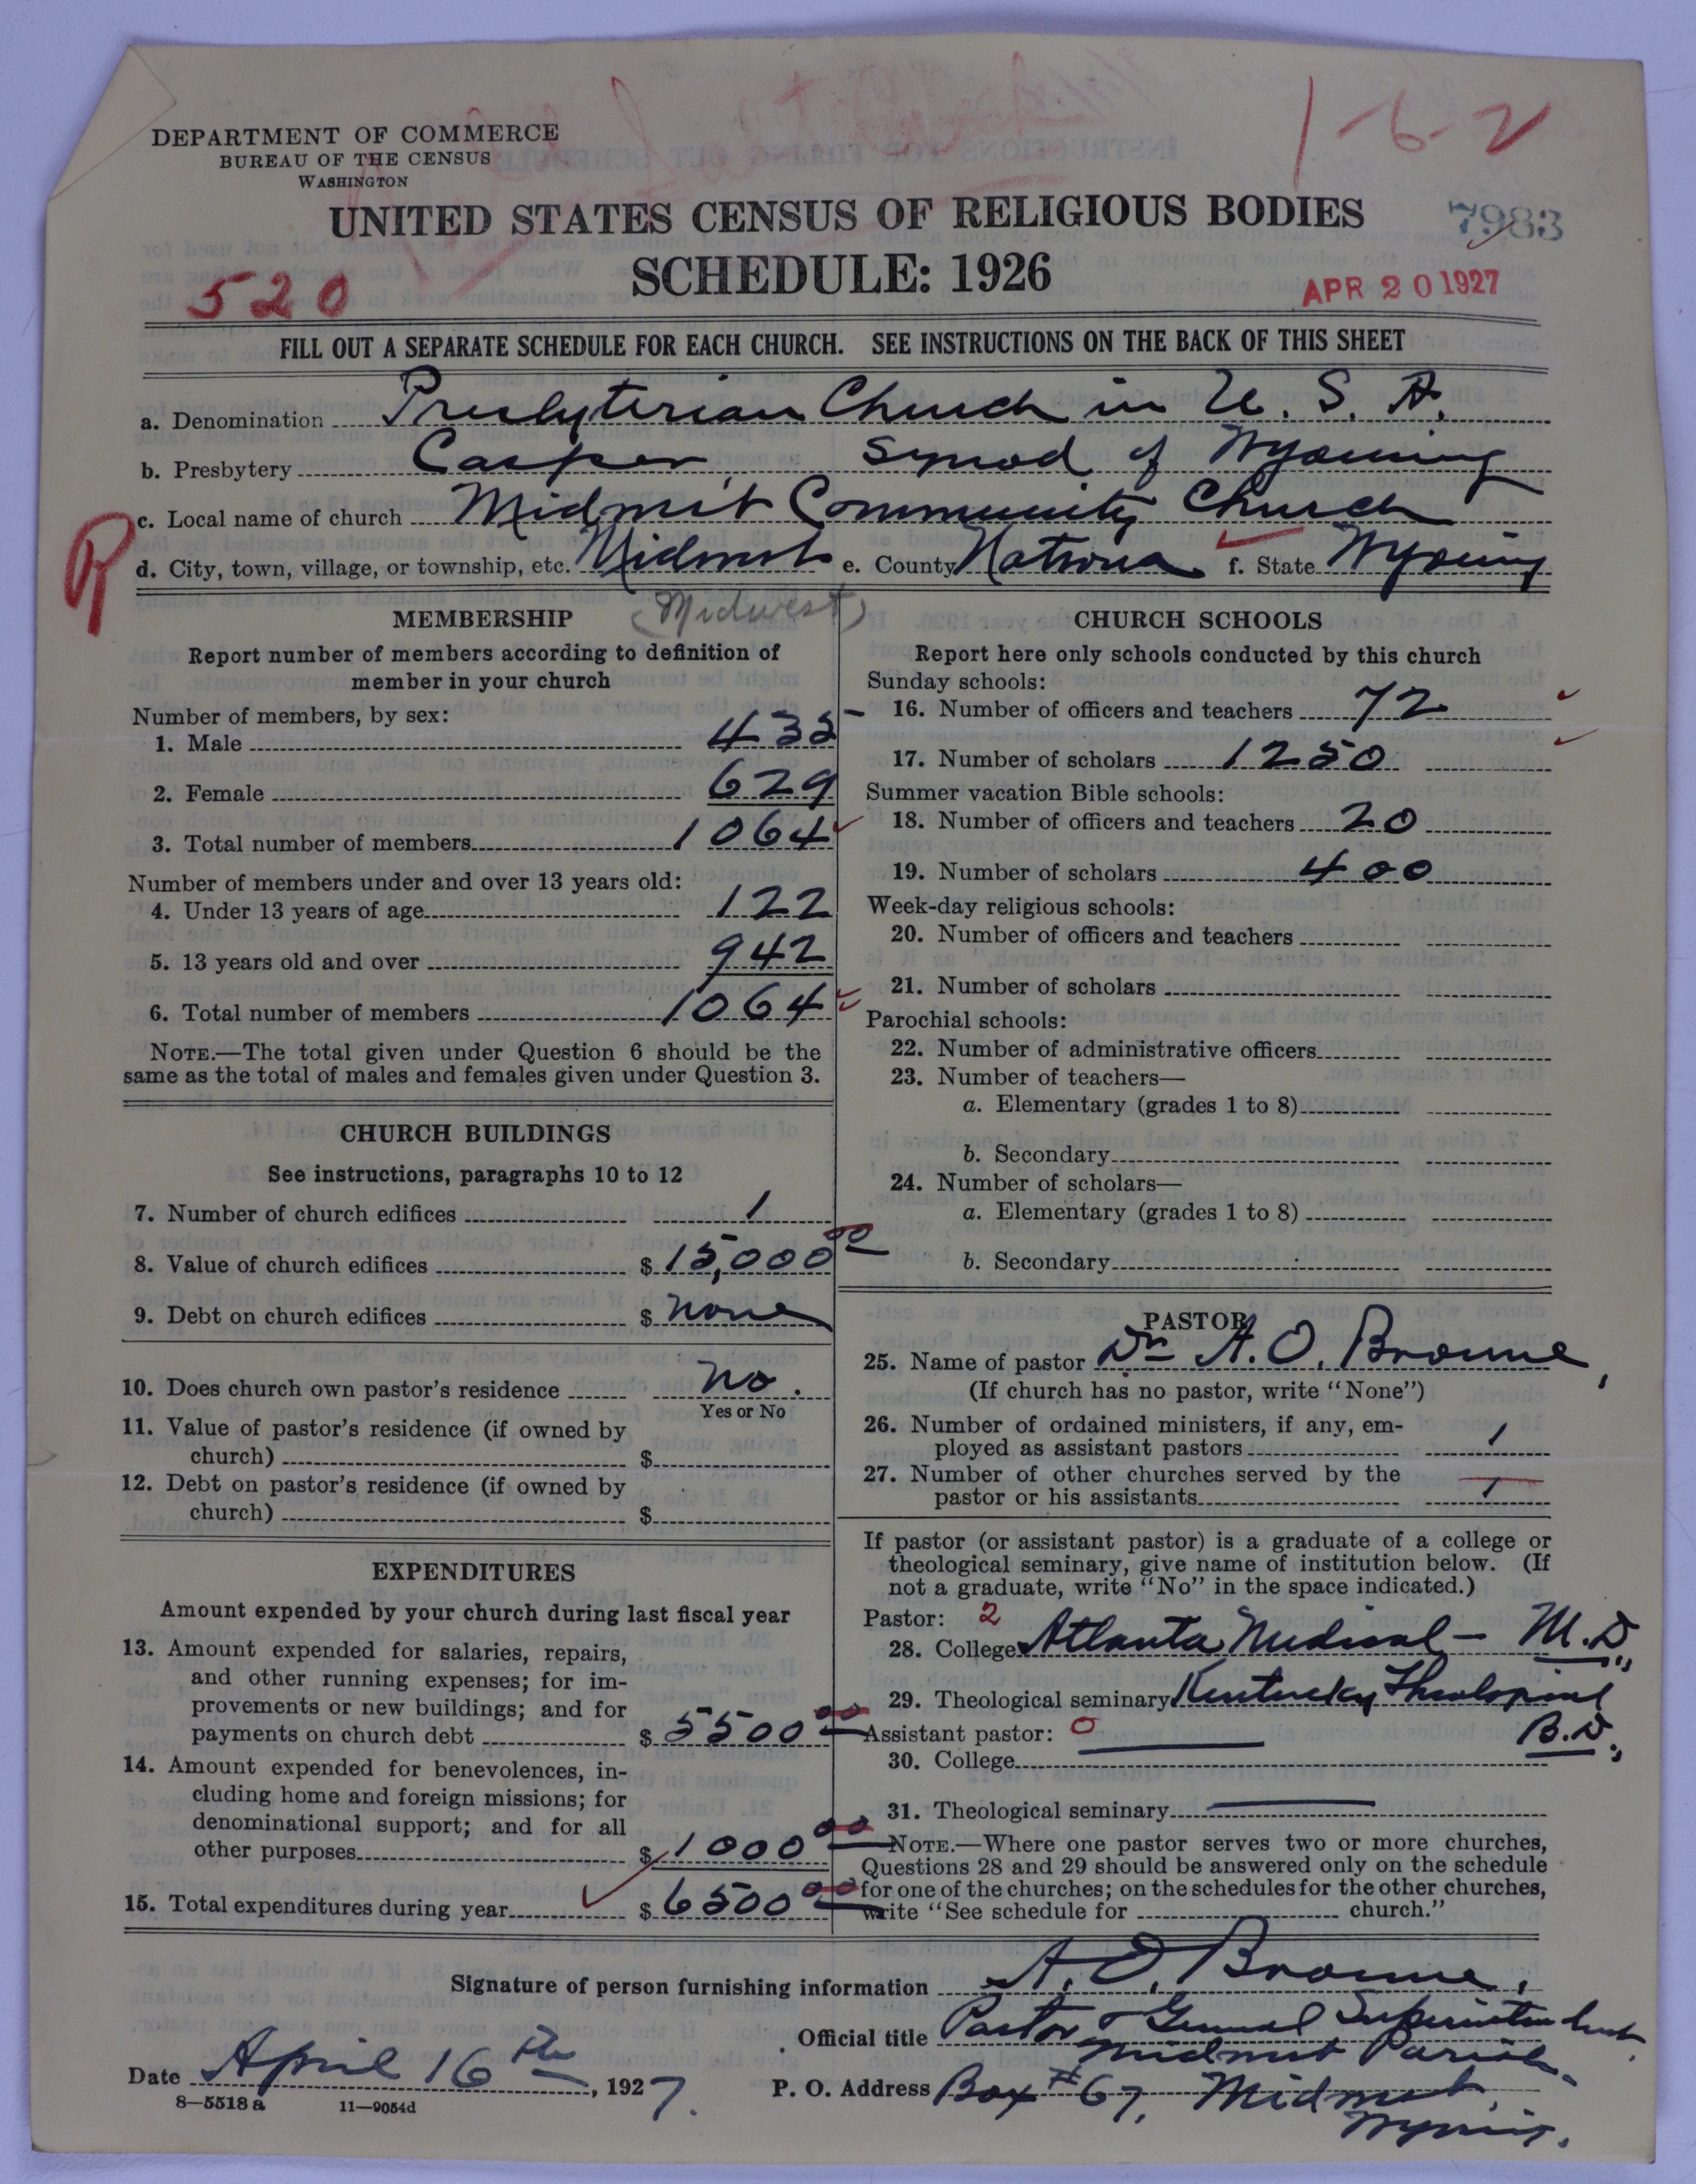 1-6-2
DEPARTMENT OF COMMERCE
BUREAU OF THE CENSUS
WASHINGTON
UNITED STATES CENSUS OF RELIGIOUS BODIES
7983
SCHEDULE: 1926
520
APR 20 1927
FILL OUT A SEPARATE SCHEDULE FOR EACH CHURCH. SEE INSTRUCTIONS ON THE BACK OF THIS SHEET
a. Denomination Presbyterian Church in U. S. A.
b. Presbytery Casper, Synod of Wyoming
c. Local name of church Midwest Community Church
R
d. City, town, village, or township, etc. Midwest e. County Natrona f. State Wyoming
(Midwest)
MEMBERSHIP
Report number of members according to definition of
member in your church
Number of members, by sex:
1. Male 435
2. Female 629
3. Total number of members 1064
Number of members under and over 13 years old:
4. Under 13 years of age 122
5. 13 years old and over 942
6. Total number of members 1064
NOTE.—The total given under Question 6 should be the
same as the total of males and females given under Question 3.
CHURCH BUILDINGS
See instructions, paragraphs 10 to 12
7. Number of church edifices 1
8. Value of church edifices $ 15,000 00
9. Debt on church edifices $ none
10. Does church own pastor's residence No.
Yes or No
11. Value of pastor's residence (if owned by
church) $
12. Debt on pastor's residence (if owned by
church) $
EXPENDITURES
Amount expended by your church during last fiscal year
13. Amount expended for salaries, repairs,
and other running expenses; for im-
provements or new buildings; and for
payments on church debt $ 5500 00
14. Amount expended for benevolences, in-
cluding home and foreign missions; for
denominational support; and for all
other purposes $ 1000 00
15. Total expenditures during year $ 6500 00
CHURCH SCHOOLS
Report here only schools conducted by this church
Sunday schools:
16. Number of officers and teachers 72
17. Number of scholars 1250
Summer vacation Bible schools:
18. Number of officers and teachers 20
19. Number of scholars 400
Week-day religious schools:
20. Number of officers and teachers
21. Number of scholars
Parochial schools:
22. Number of administrative officers
23. Number of teachers—
a. Elementary (grades 1 to 8)
b. Secondary
24. Number of scholars—
a. Elementary (grades 1 to 8)
b. Secondary
PASTOR
25. Name of pastor Dr A. O. Browne,
(If church has no pastor, write "None")
26. Number of ordained ministers, if any, em-
ployed as assistant pastors 1
27. Number of other churches served by the
pastor or his assistants 1
If pastor (or assistant pastor) is a graduate of a college or
theological seminary, give name of institution below. (If
not a graduate, write "No" in the space indicated.)
Pastor: 2
28. College Atlanta Medical — M.D.,
29. Theological seminary Kentucky Theological
B.D.,
Assistant pastor: 0
30. College
31. Theological seminary
NOTE.—Where one pastor serves two or more churches,
Questions 28 and 29 should be answered only on the schedule
for one of the churches; on the schedules for the other churches,
write "See schedule for church."
Signature of person furnishing information A. O. Browne,
Official title Pastor & General Superintendent
Midwest Parish.
Date April 16th, 1927.
P. O. Address Box #67, Midwest,
Wyoming.
8—5518 a 11—9054d